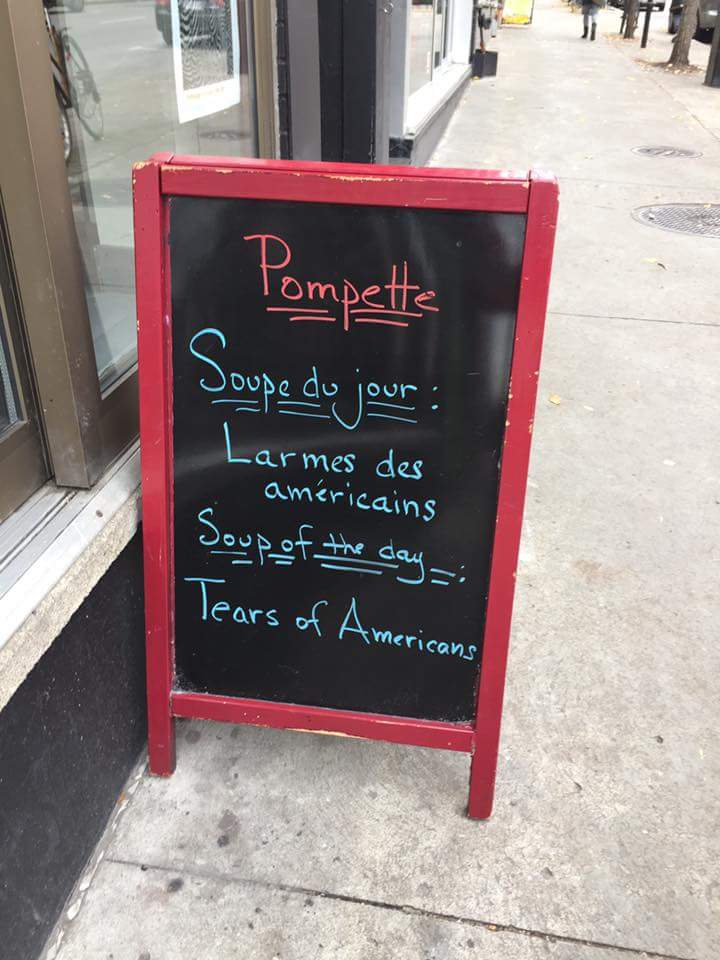 Pompette
Soupe du jour :
Larmes des
américains
Soup of the day :
Tears of Americans